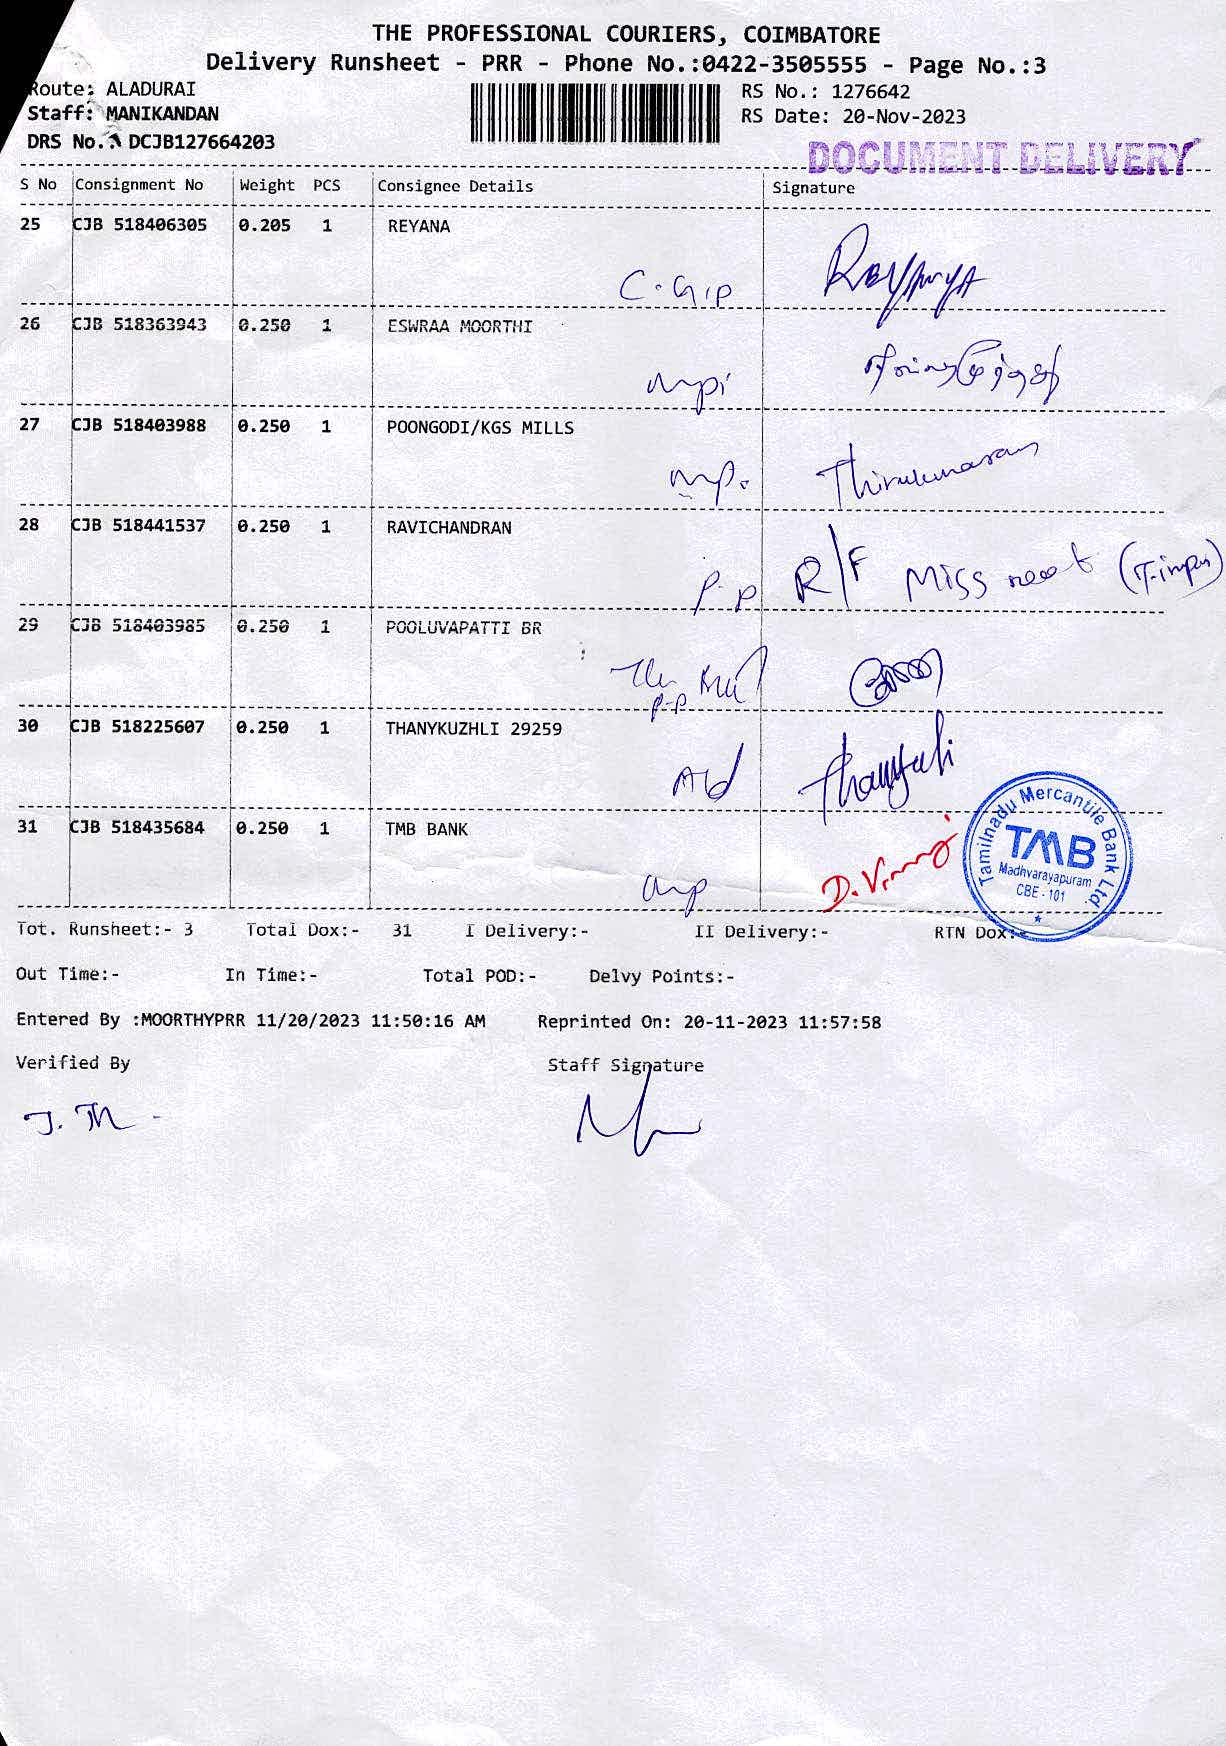 THE PROFESSIONAL COURIERS, COIMBATORE
Delivery Runsheet - PRR - Phone No.:0422-3505555 - Page No.:3
Route: ALADURAI
RS No.: 1276642
Staff: MANIKANDAN
RS Date: 20-Nov-2023
DRS No.: DCJB127664203
DOCUMENT DELIVERY
S No Consignment No Weight PCS Consignee Details Signature
25 CJB 518406305 0.205 1 REYANA
26 CJB 518363943 0.250 1 ESWRAA MOORTHI
27 CJB 518403988 0.250 1 POONGODI/KGS MILLS
Thirukumaran
28 CJB 518441537 0.250 1 RAVICHANDRAN
P.P R/F Miss
29 CJB 518403985 0.250 1 POOLUVAPATTI BR
P-P
30 CJB 518225607 0.250 1 THANYKUZHLI 29259
31 CJB 518435684 0.250 1 TMB BANK
Tamilnadu Mercantile Bank Ltd.
TMB
Madhvarayapuram
CBE - 101
Tot. Runsheet:- 3 Total Dox:- 31 I Delivery:- II Delivery:- RTN Dox:-
Out Time:- In Time:- Total POD:- Delvy Points:-
Entered By :MOORTHYPRR 11/20/2023 11:50:16 AM Reprinted On: 20-11-2023 11:57:58
Verified By Staff Signature